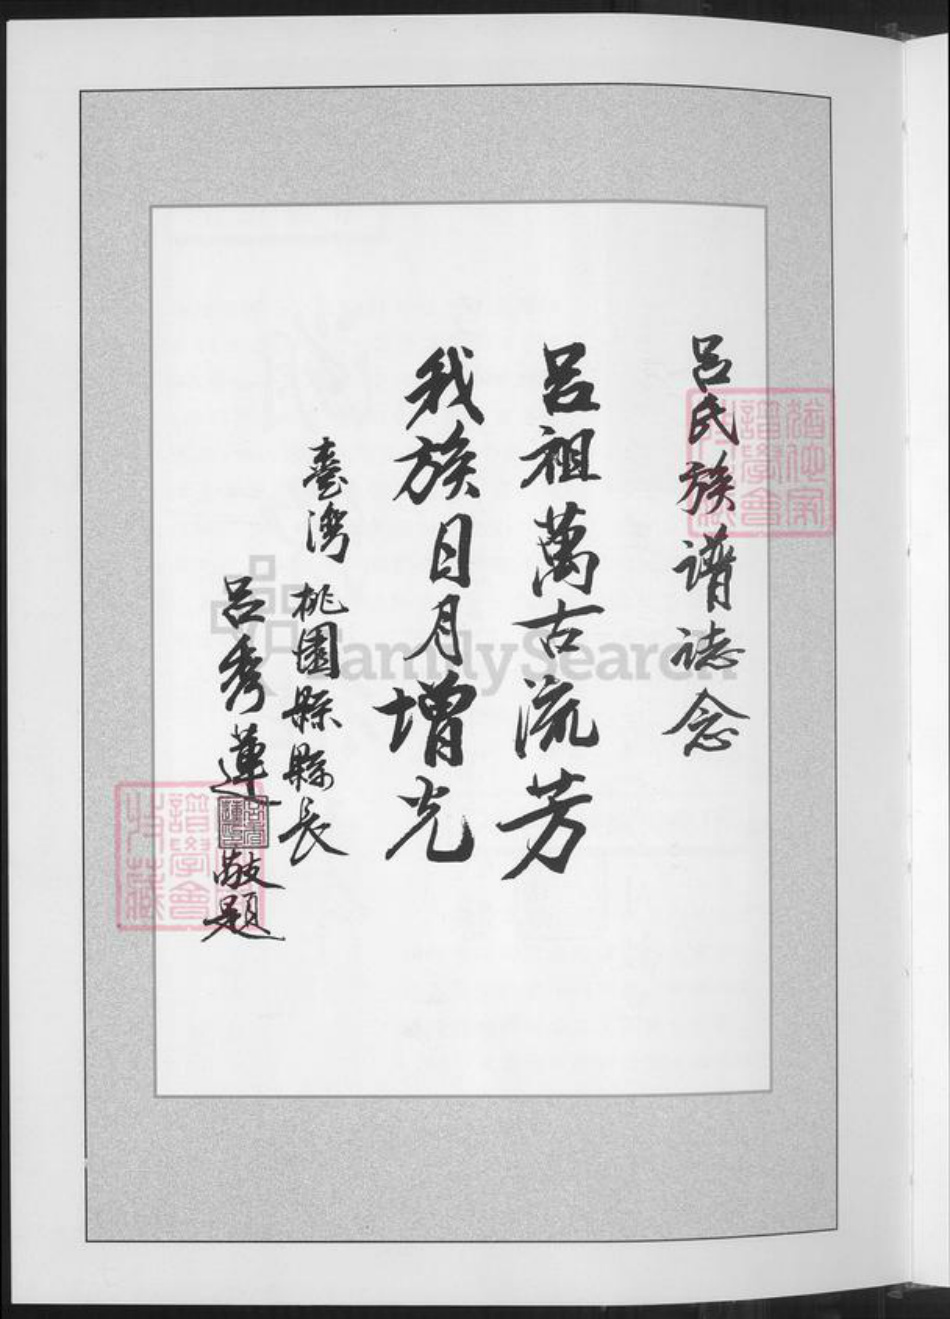 呂氏族譜誌念
呂祖萬古流芳
我族日月增光
臺灣桃園縣縣長
呂秀蓮敬題
譜學會
收藏
FamilySearch